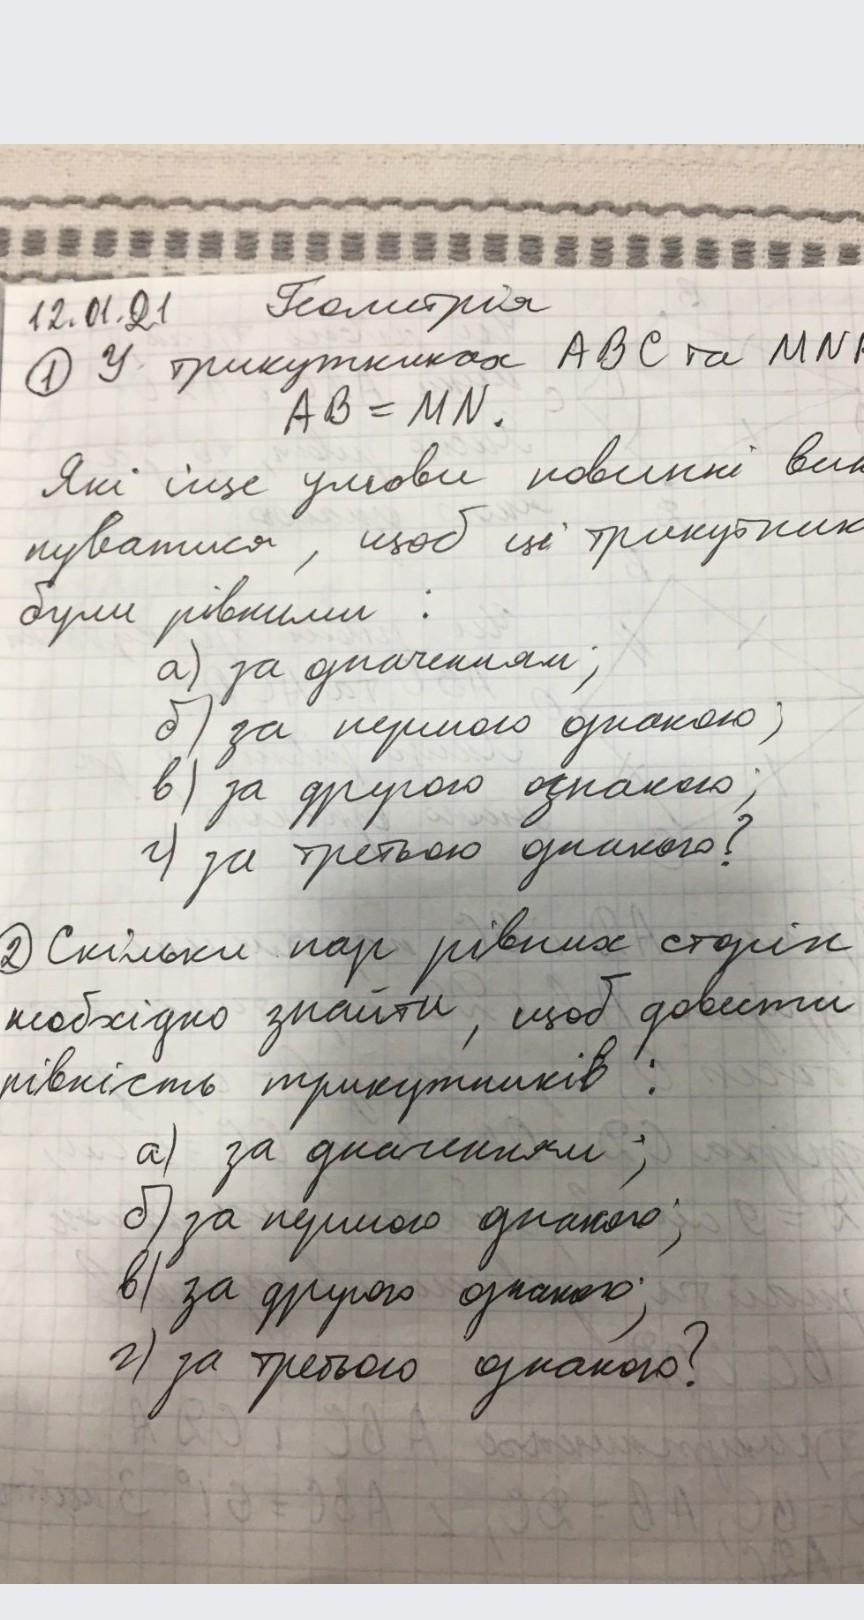 12.01.21 Геометрія
① У трикутниках ABC та MN
AB = MN.
Які іще умови повинні вик
нуватися, щоб ці трикутник
були рівними :
а) за значенням;
б) за першою ознакою;
в) за другою ознакою;
г) за третьою ознакою?
② Скільки пар рівних сторін
необхідно знайти, щоб довести
рівність трикутників :
а) за значенням;
б) за першою ознакою;
в) за другою ознакою;
г) за третьою ознакою?